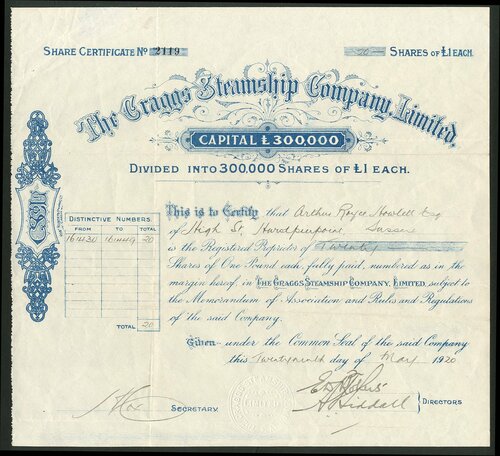 SHARE CERTIFICATE No 2119
20 SHARES OF £1 EACH.
The Craggs Steamship Company, Limited.
CAPITAL £300,000
DIVIDED INTO 300,000 SHARES OF £1 EACH.
This is to Certify that Arthur Royce Howlett Esq
of High St, Hurstpierpoint Sussex
is the Registered Proprietor of Twenty
Shares of One Pound each, fully paid, numbered as in the
margin hereof, in THE CRAGGS STEAMSHIP COMPANY, LIMITED, subject to
the Memorandum of Association and Rules and Regulations
of the said Company.
DISTINCTIVE NUMBERS.
FROM TO TOTAL
164430 164449 20
TOTAL 20
Given under the Common Seal of the said Company
this Twenty ninth day of May 1920
SECRETARY.
DIRECTORS